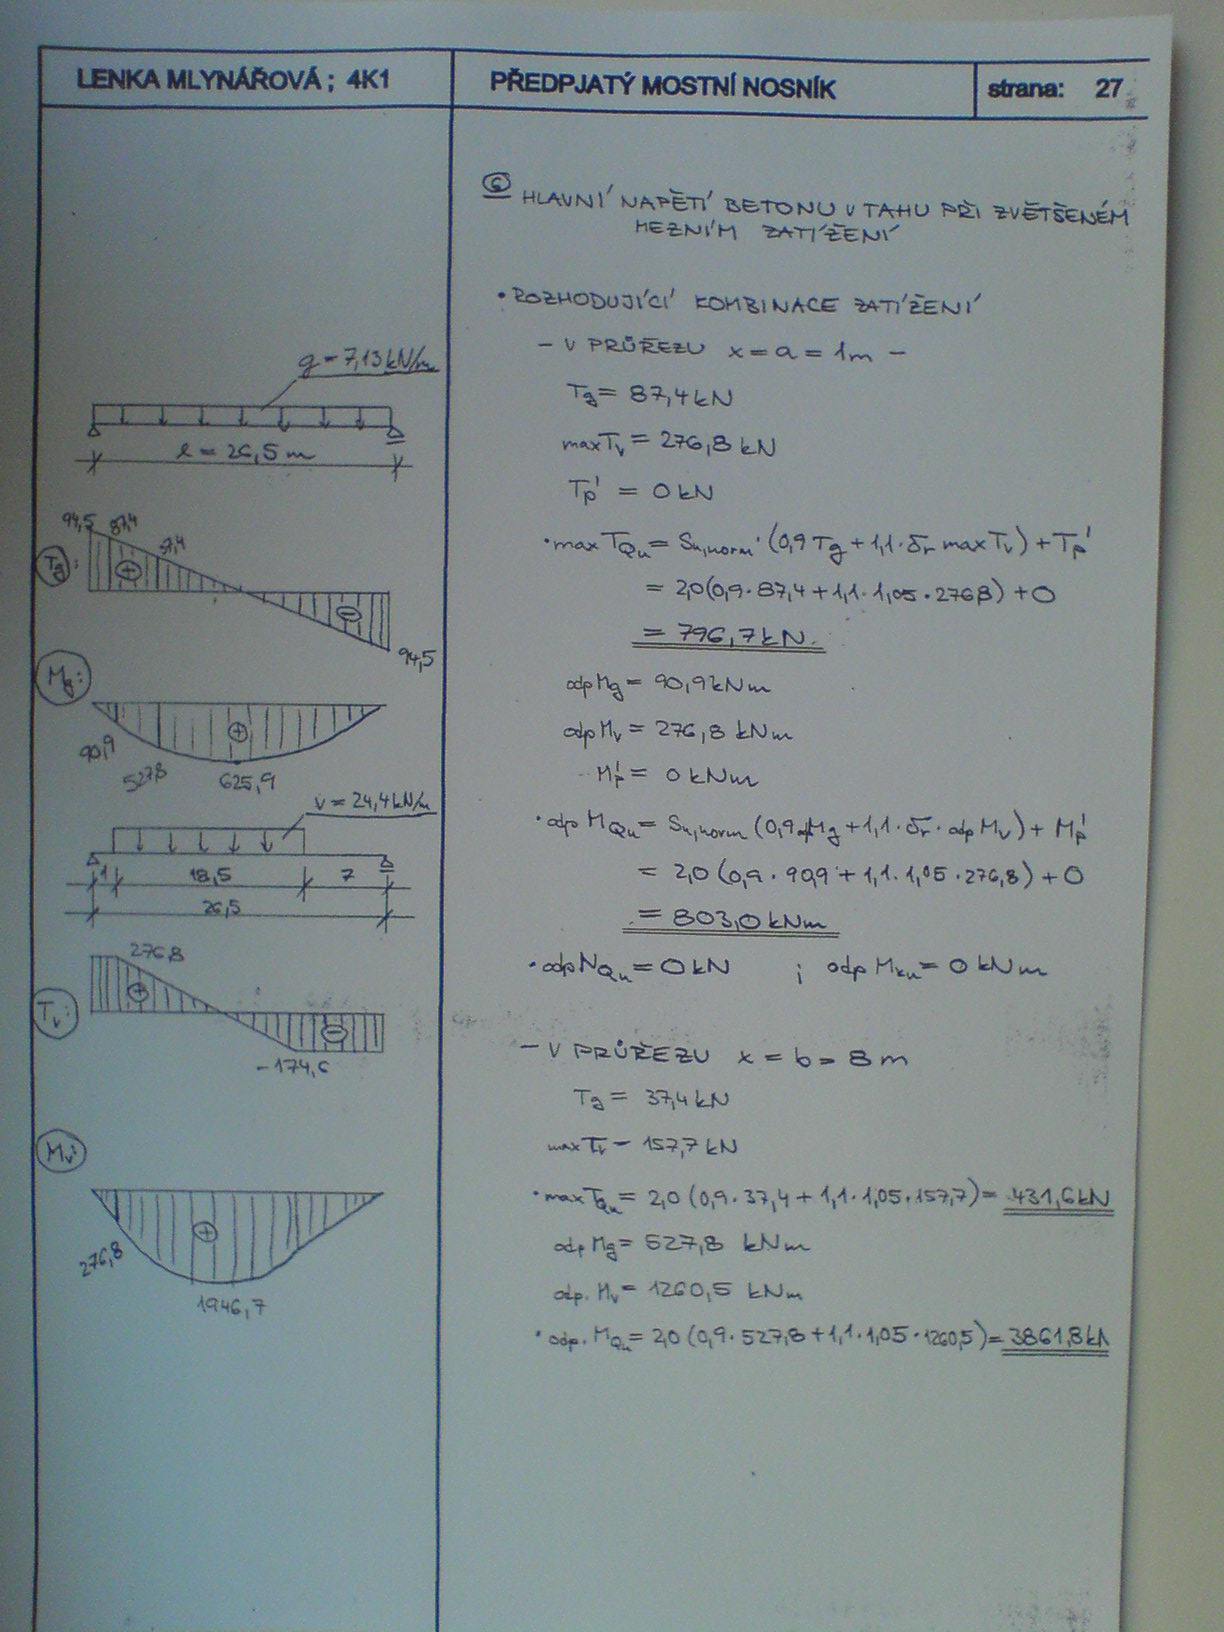 LENKA MLYNÁŘOVÁ; 4K1
PŘEDPJATÝ MOSTNÍ NOSNÍK
strana: 27
6 HLAVNÍ NAPĚTÍ BETONU V TAHU PŘI ZVĚTŠENÉM
MEZNÍM ZATÍŽENÍ
• ROZHODUJÍCÍ KOMBINACE ZATÍŽENÍ
- V PRŮŘEZU x = a = 1m -
Tg = 87,4 kN
max Tv = 276,8 kN
Tp' = 0 kN
• max TQu = Su,norm · (0,9 Tg + 1,1 · δr max Tv) + Tp'
= 2,0 (0,9 · 87,4 + 1,1 · 1,05 · 276,8) + 0
= 796,7 kN
odp Mg = 90,9 kNm
odp Mv = 276,8 kNm
Mp' = 0 kNm
• odp MQu = Su,norm (0,9 Mg + 1,1 · δr · odp Mv) + Mp'
= 2,0 (0,9 · 90,9 + 1,1 · 1,05 · 276,8) + 0
= 803,0 kNm
• odp NQu = 0 kN ; odp Mku = 0 kNm
- V PRŮŘEZU x = b = 8 m
Tg = 37,4 kN
max Tv = 157,7 kN
• max TQu = 2,0 (0,9 · 37,4 + 1,1 · 1,05 · 157,7) = 431,6 kN
odp Mg = 527,8 kNm
odp. Mv = 1260,5 kNm
• odp. MQu = 2,0 (0,9 · 527,8 + 1,1 · 1,05 · 1260,5) = 3861,8 kN
g = 7,13 kN/m
l = 26,5 m
94,5 87,4 37,4
Tg:
94,5
Mg:
90,9 527,8 625,9
v = 24,4 kN/m
1 18,5 7
26,5
276,8
Tv:
-174,6
Mv:
276,8
1946,7